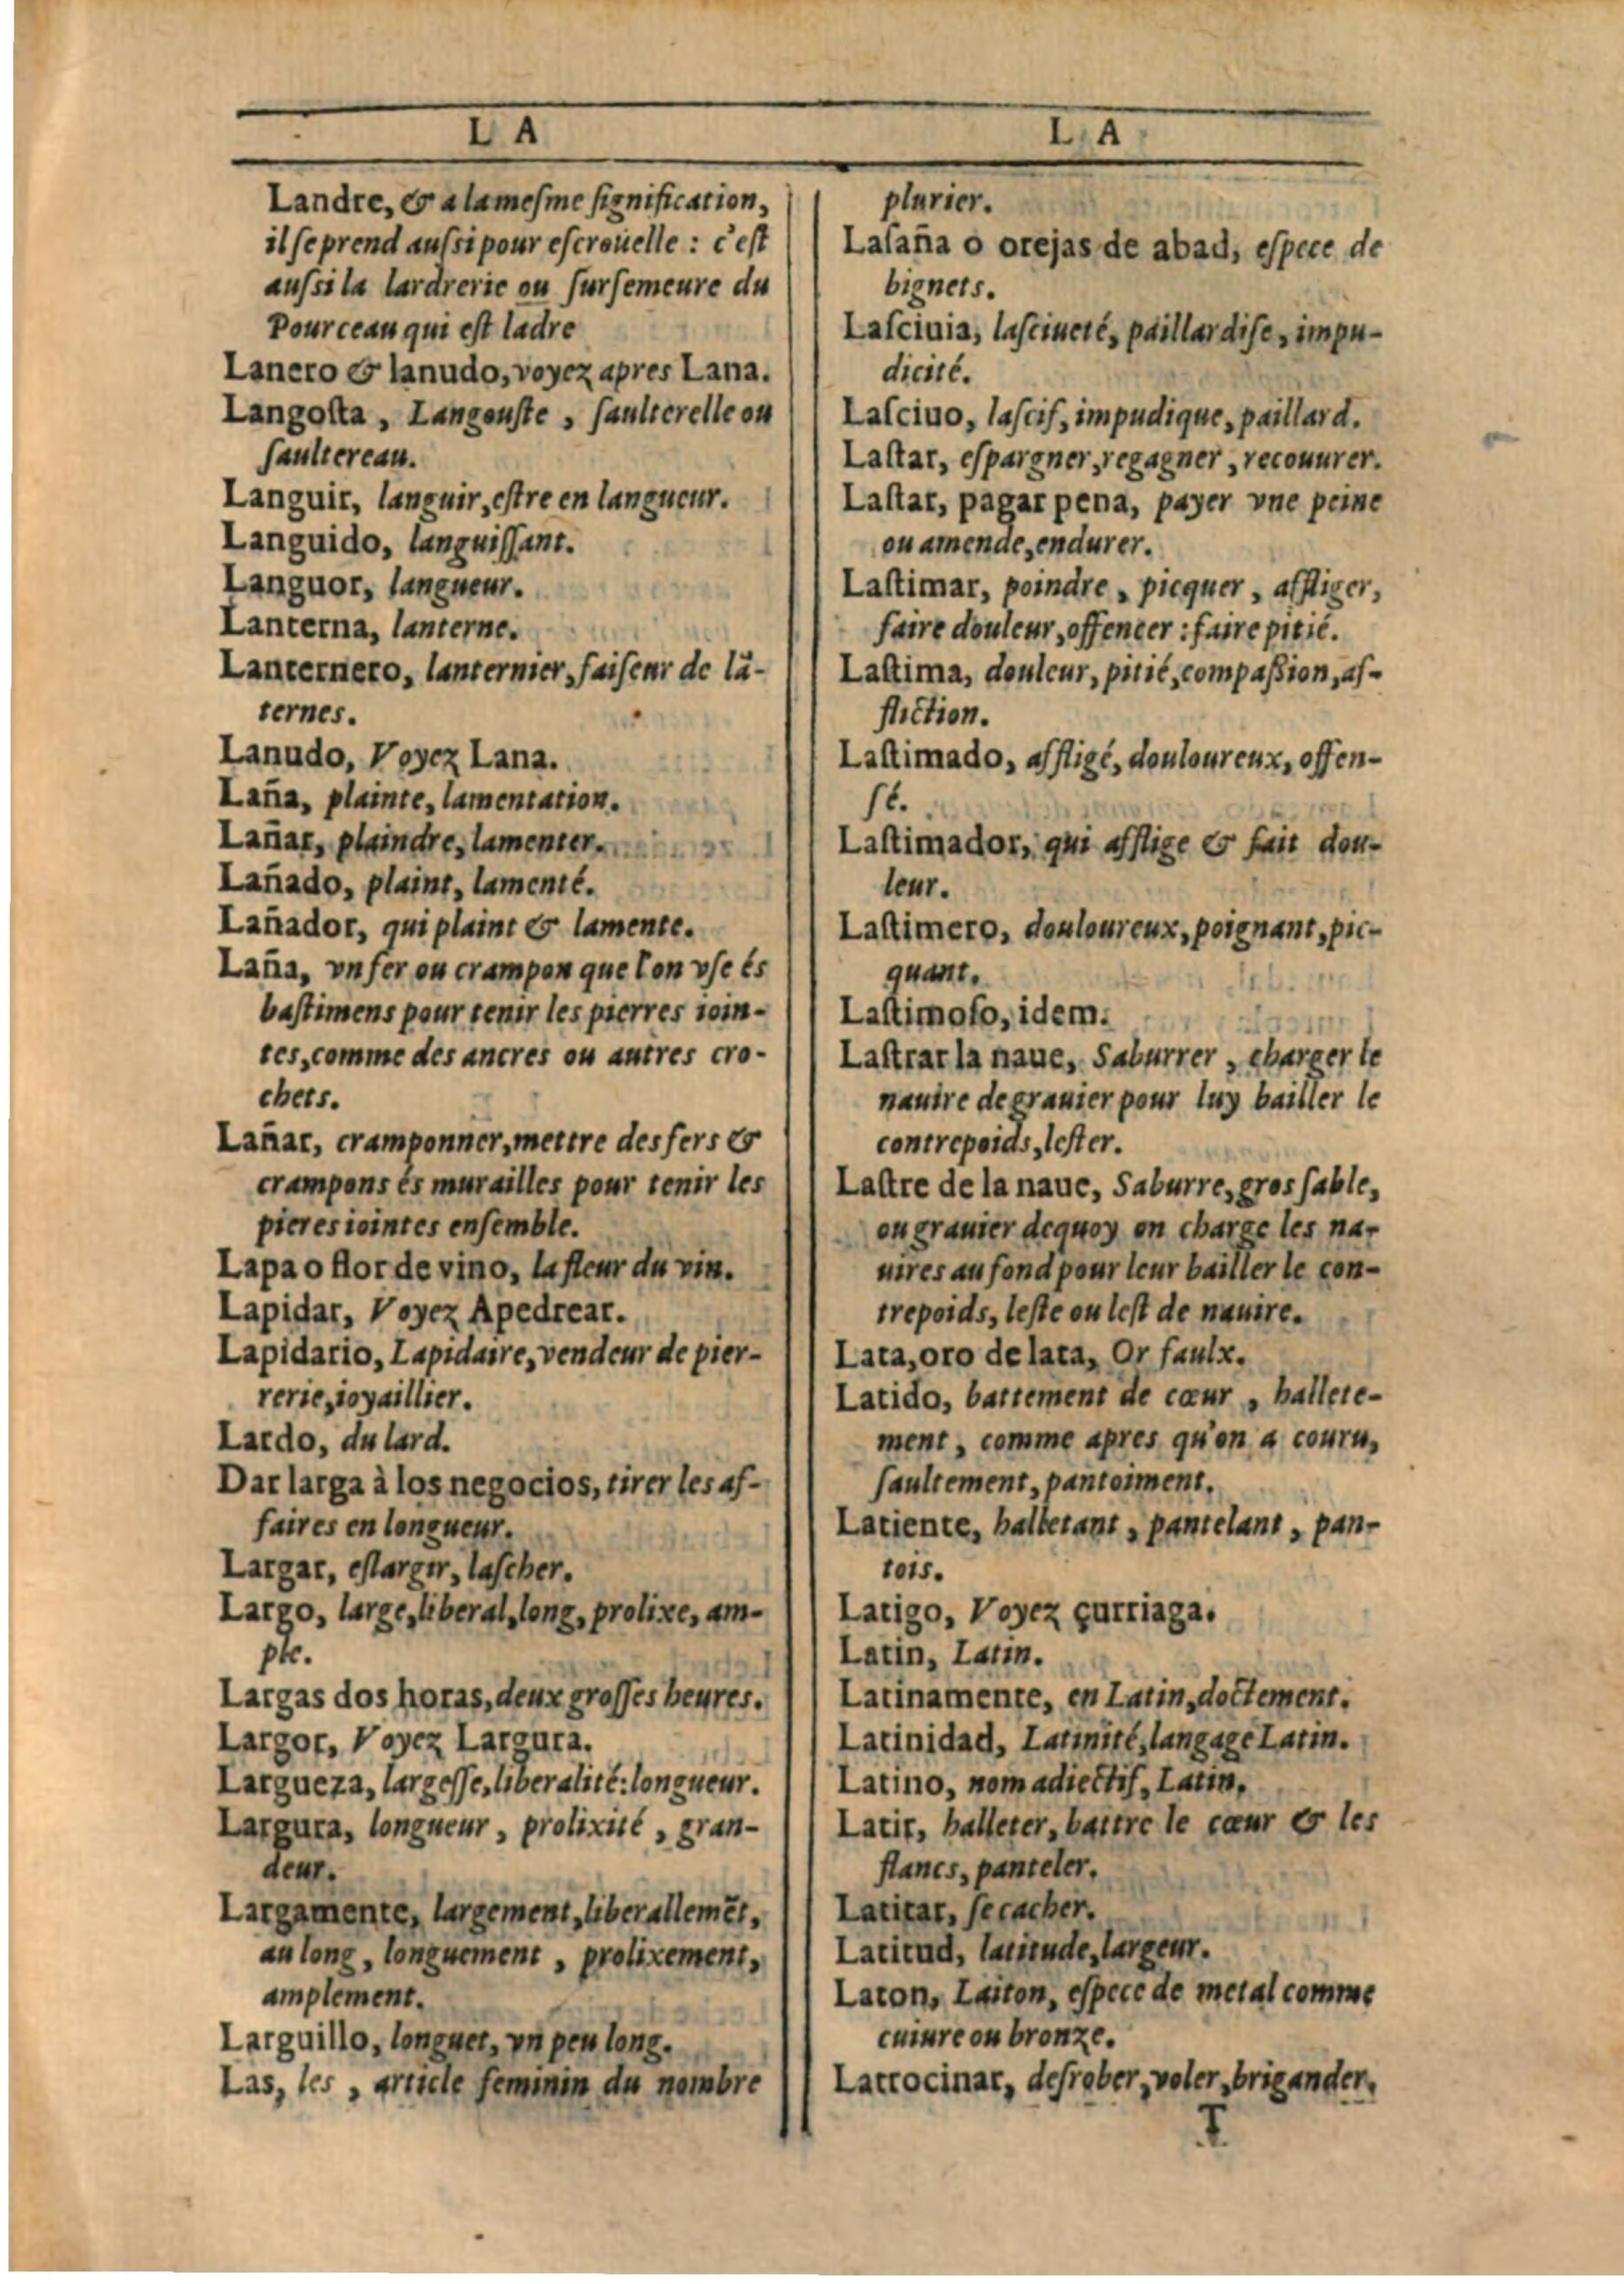 L A
Landre, & a la meſme ſignification,
il ſe prend auſsi pour eſcroüelle : c'eſt
auſsi la lardrerie ou ſurſemeure du
Pourceau qui eſt ladre
Lanero & lanudo, voyez apres Lana.
Langoſta , Langouſte , ſaulterelle ou
ſaultereau.
Languir, languir, eſtre en langueur.
Languido, languiſſant.
Languor, langueur.
Lanterna, lanterne.
Lanternero, lanternier, faiſeur de lã-
ternes.
Lanudo, Voyez Lana.
Laña, plainte, lamentation.
Lañar, plaindre, lamenter.
Lañado, plaint, lamenté.
Lañador, qui plaint & lamente.
Laña, vn fer ou crampon que l'on vſe és
baſtimens pour tenir les pierres ioin-
tes, comme des ancres ou autres cro-
chets.
Lañar, cramponner, mettre des fers &
crampons és murailles pour tenir les
pieres iointes enſemble.
Lapa o flor de vino, la fleur du vin.
Lapidar, Voyez Apedrear.
Lapidario, Lapidaire, vendeur de pier-
rerie, ioyaillier.
Lardo, du lard.
Dar larga à los negocios, tirer les af-
faires en longueur.
Largar, eſlargir, laſcher.
Largo, large, liberal, long, prolixe, am-
ple.
Largas dos horas, deux groſſes heures.
Largor, Voyez Largura.
Largueza, largeſſe, liberalité: longueur.
Largura, longueur , prolixité , gran-
deur.
Largamente, largement, liberallemẽt,
au long , longuement , prolixement,
amplement.
Larguillo, longuet, vn peu long.
Las, les , article feminin du nombre
L A
plurier.
Laſaña o orejas de abad, eſpece de
bignets.
Laſciuia, laſciueté, paillardiſe, impu-
dicité.
Laſciuo, laſcif, impudique, paillard.
Laſtar, eſpargner, regagner, recouurer.
Laſtar, pagar pena, payer vne peine
ou amende, endurer.
Laſtimar, poindre , picquer , affliger,
faire douleur, offencer : faire pitié.
Laſtima, douleur, pitié, compaſsion, af-
fliction.
Laſtimado, affligé, douloureux, offen-
ſé.
Laſtimador, qui afflige & fait dou-
leur.
Laſtimero, douloureux, poignant, pic-
quant.
Laſtimoſo, idem.
Laſtrar la naue, Saburrer , charger le
nauire de grauier pour luy bailler le
contrepoids, leſter.
Laſtre de la naue, Saburre, gros ſable,
ou grauier dequoy on charge les na-
uires au fond pour leur bailler le con-
trepoids, leſte ou leſt de nauire.
Lata, oro de lata, Or faulx.
Latido, battement de cœur , hallete-
ment , comme apres qu'on a couru,
ſaultement, pantoiment.
Latiente, halletant , pantelant , pan-
tois.
Latigo, Voyez çurriaga.
Latin, Latin.
Latinamente, en Latin, doctement.
Latinidad, Latinité, langage Latin.
Latino, nom adiectif, Latin.
Latir, halleter, battre le cœur & les
flancs, panteler.
Latitar, ſe cacher.
Latitud, latitude, largeur.
Laton, Laiton, eſpece de metal comme
cuiure ou bronze.
Latrocinar, deſrober, voler, brigander.
T